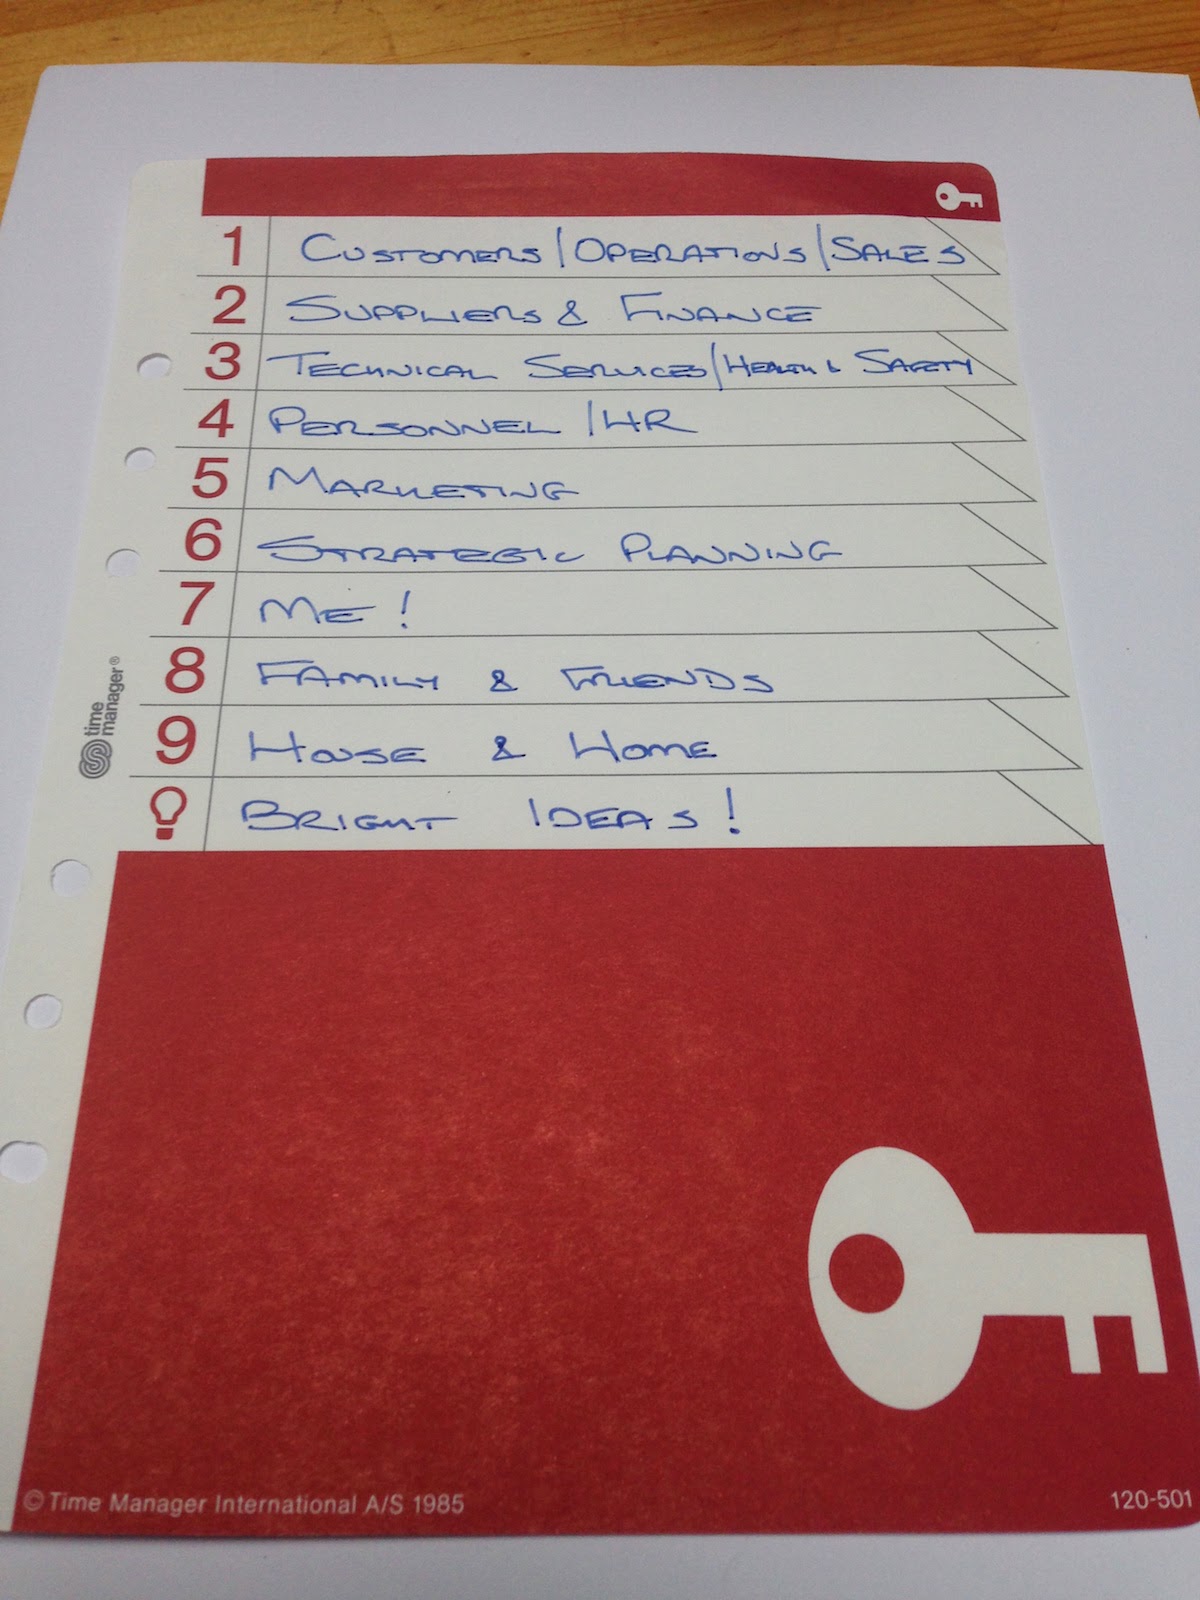 1 CUSTOMERS/OPERATIONS/SALES
2 SUPPLIERS & FINANCE
3 TECHNICAL SERVICES/HEALTH & SAFETY
4 PERSONNEL/HR
5 MARKETING
6 STRATEGIC PLANNING
7 ME!
8 FAMILY & FRIENDS
9 HOUSE & HOME
BRIGHT IDEAS!
time
manager®
© Time Manager International A/S 1985
120-501